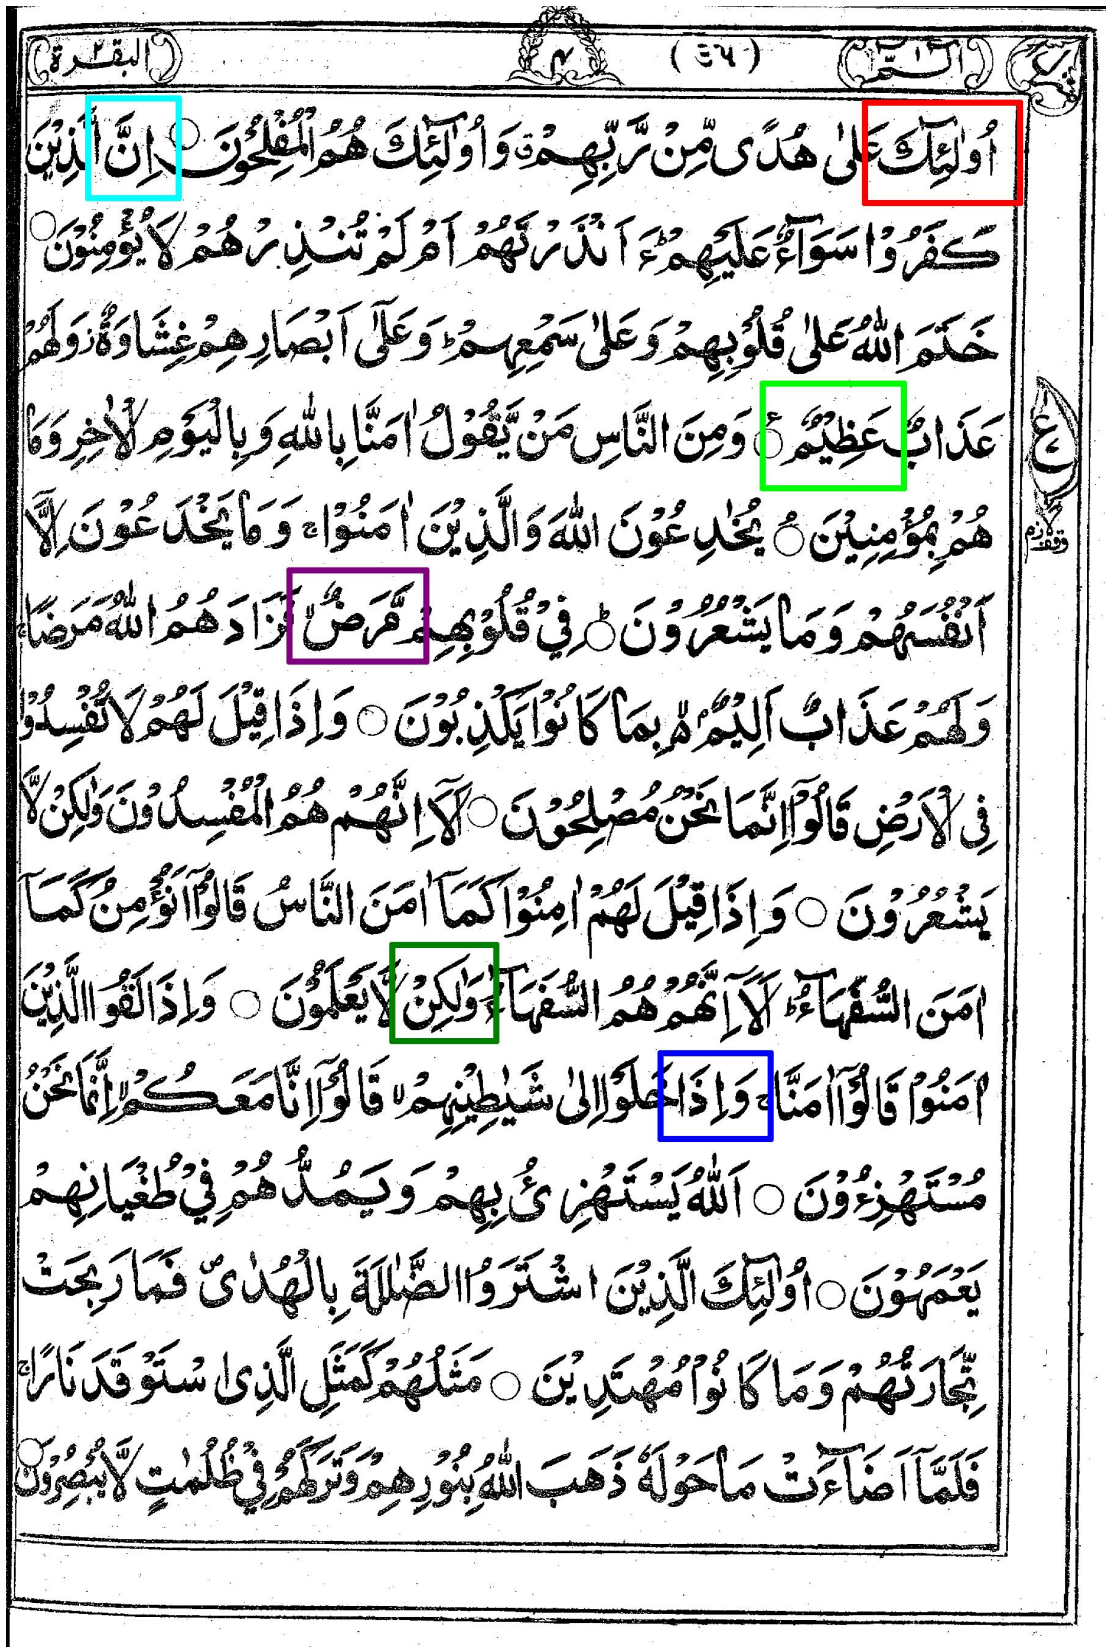 البقرة ٢ ٤ (٤٦٥) الٓمّٓ ١
اُولٰٓئِكَ عَلٰى هُدًى مِّنْ رَّبِّهِمْ ۙ وَاُولٰٓئِكَ هُمُ الْمُفْلِحُوْنَ ○ اِنَّ الَّذِيْنَ
كَفَرُوْا سَوَآءٌ عَلَيْهِمْ ءَاَنْذَرْتَهُمْ اَمْ لَمْ تُنْذِرْهُمْ لَا يُؤْمِنُوْنَ ○
خَتَمَ اللّٰهُ عَلٰى قُلُوْبِهِمْ وَعَلٰى سَمْعِهِمْ ؕ وَعَلٰٓى اَبْصَارِهِمْ غِشَاوَةٌ ز وَلَهُمْ
عَذَابٌ عَظِيْمٌ ○ع وَمِنَ النَّاسِ مَنْ يَّقُوْلُ اٰمَنَّا بِاللّٰهِ وَبِالْيَوْمِ الْاٰخِرِ وَمَا
ع
هُمْ بِمُؤْمِنِيْنَ ○ۘ يُخٰدِعُوْنَ اللّٰهَ وَالَّذِيْنَ اٰمَنُوْا ۚ وَمَا يَخْدَعُوْنَ اِلَّآ
اَنْفُسَهُمْ وَمَا يَشْعُرُوْنَ ○ؕ فِيْ قُلُوْبِهِمْ مَّرَضٌ ۙ فَزَادَهُمُ اللّٰهُ مَرَضًا ۚ
وَلَهُمْ عَذَابٌ اَلِيْمٌ ۢ بِمَا كَانُوْا يَكْذِبُوْنَ ○ وَاِذَا قِيْلَ لَهُمْ لَا تُفْسِدُوْا
فِي الْاَرْضِ قَالُوْٓا اِنَّمَا نَحْنُ مُصْلِحُوْنَ ○ اَلَآ اِنَّهُمْ هُمُ الْمُفْسِدُوْنَ وَلٰكِنْ لَّا
يَشْعُرُوْنَ ○ وَاِذَا قِيْلَ لَهُمْ اٰمِنُوْا كَمَآ اٰمَنَ النَّاسُ قَالُوْٓا اَنُؤْمِنُ كَمَآ
اٰمَنَ السُّفَهَآءُ ؕ اَلَآ اِنَّهُمْ هُمُ السُّفَهَآءُ وَلٰكِنْ لَّا يَعْلَمُوْنَ ○ وَاِذَا لَقُوا الَّذِيْنَ
اٰمَنُوْا قَالُوْٓا اٰمَنَّا ۚ وَاِذَا خَلَوْا اِلٰى شَيٰطِيْنِهِمْ ۙ قَالُوْٓا اِنَّا مَعَكُمْ ۙ اِنَّمَا نَحْنُ
مُسْتَهْزِءُوْنَ ○ اَللّٰهُ يَسْتَهْزِئُ بِهِمْ وَيَمُدُّهُمْ فِيْ طُغْيَانِهِمْ
يَعْمَهُوْنَ ○ اُولٰٓئِكَ الَّذِيْنَ اشْتَرَوُا الضَّلٰلَةَ بِالْهُدٰى ۪ فَمَا رَبِحَتْ
تِّجَارَتُهُمْ وَمَا كَانُوْا مُهْتَدِيْنَ ○ مَثَلُهُمْ كَمَثَلِ الَّذِى اسْتَوْقَدَ نَارًا ۚ
فَلَمَّآ اَضَآءَتْ مَا حَوْلَهٗ ذَهَبَ اللّٰهُ بِنُوْرِهِمْ وَتَرَكَهُمْ فِيْ ظُلُمٰتٍ لَّا يُبْصِرُوْنَ ○